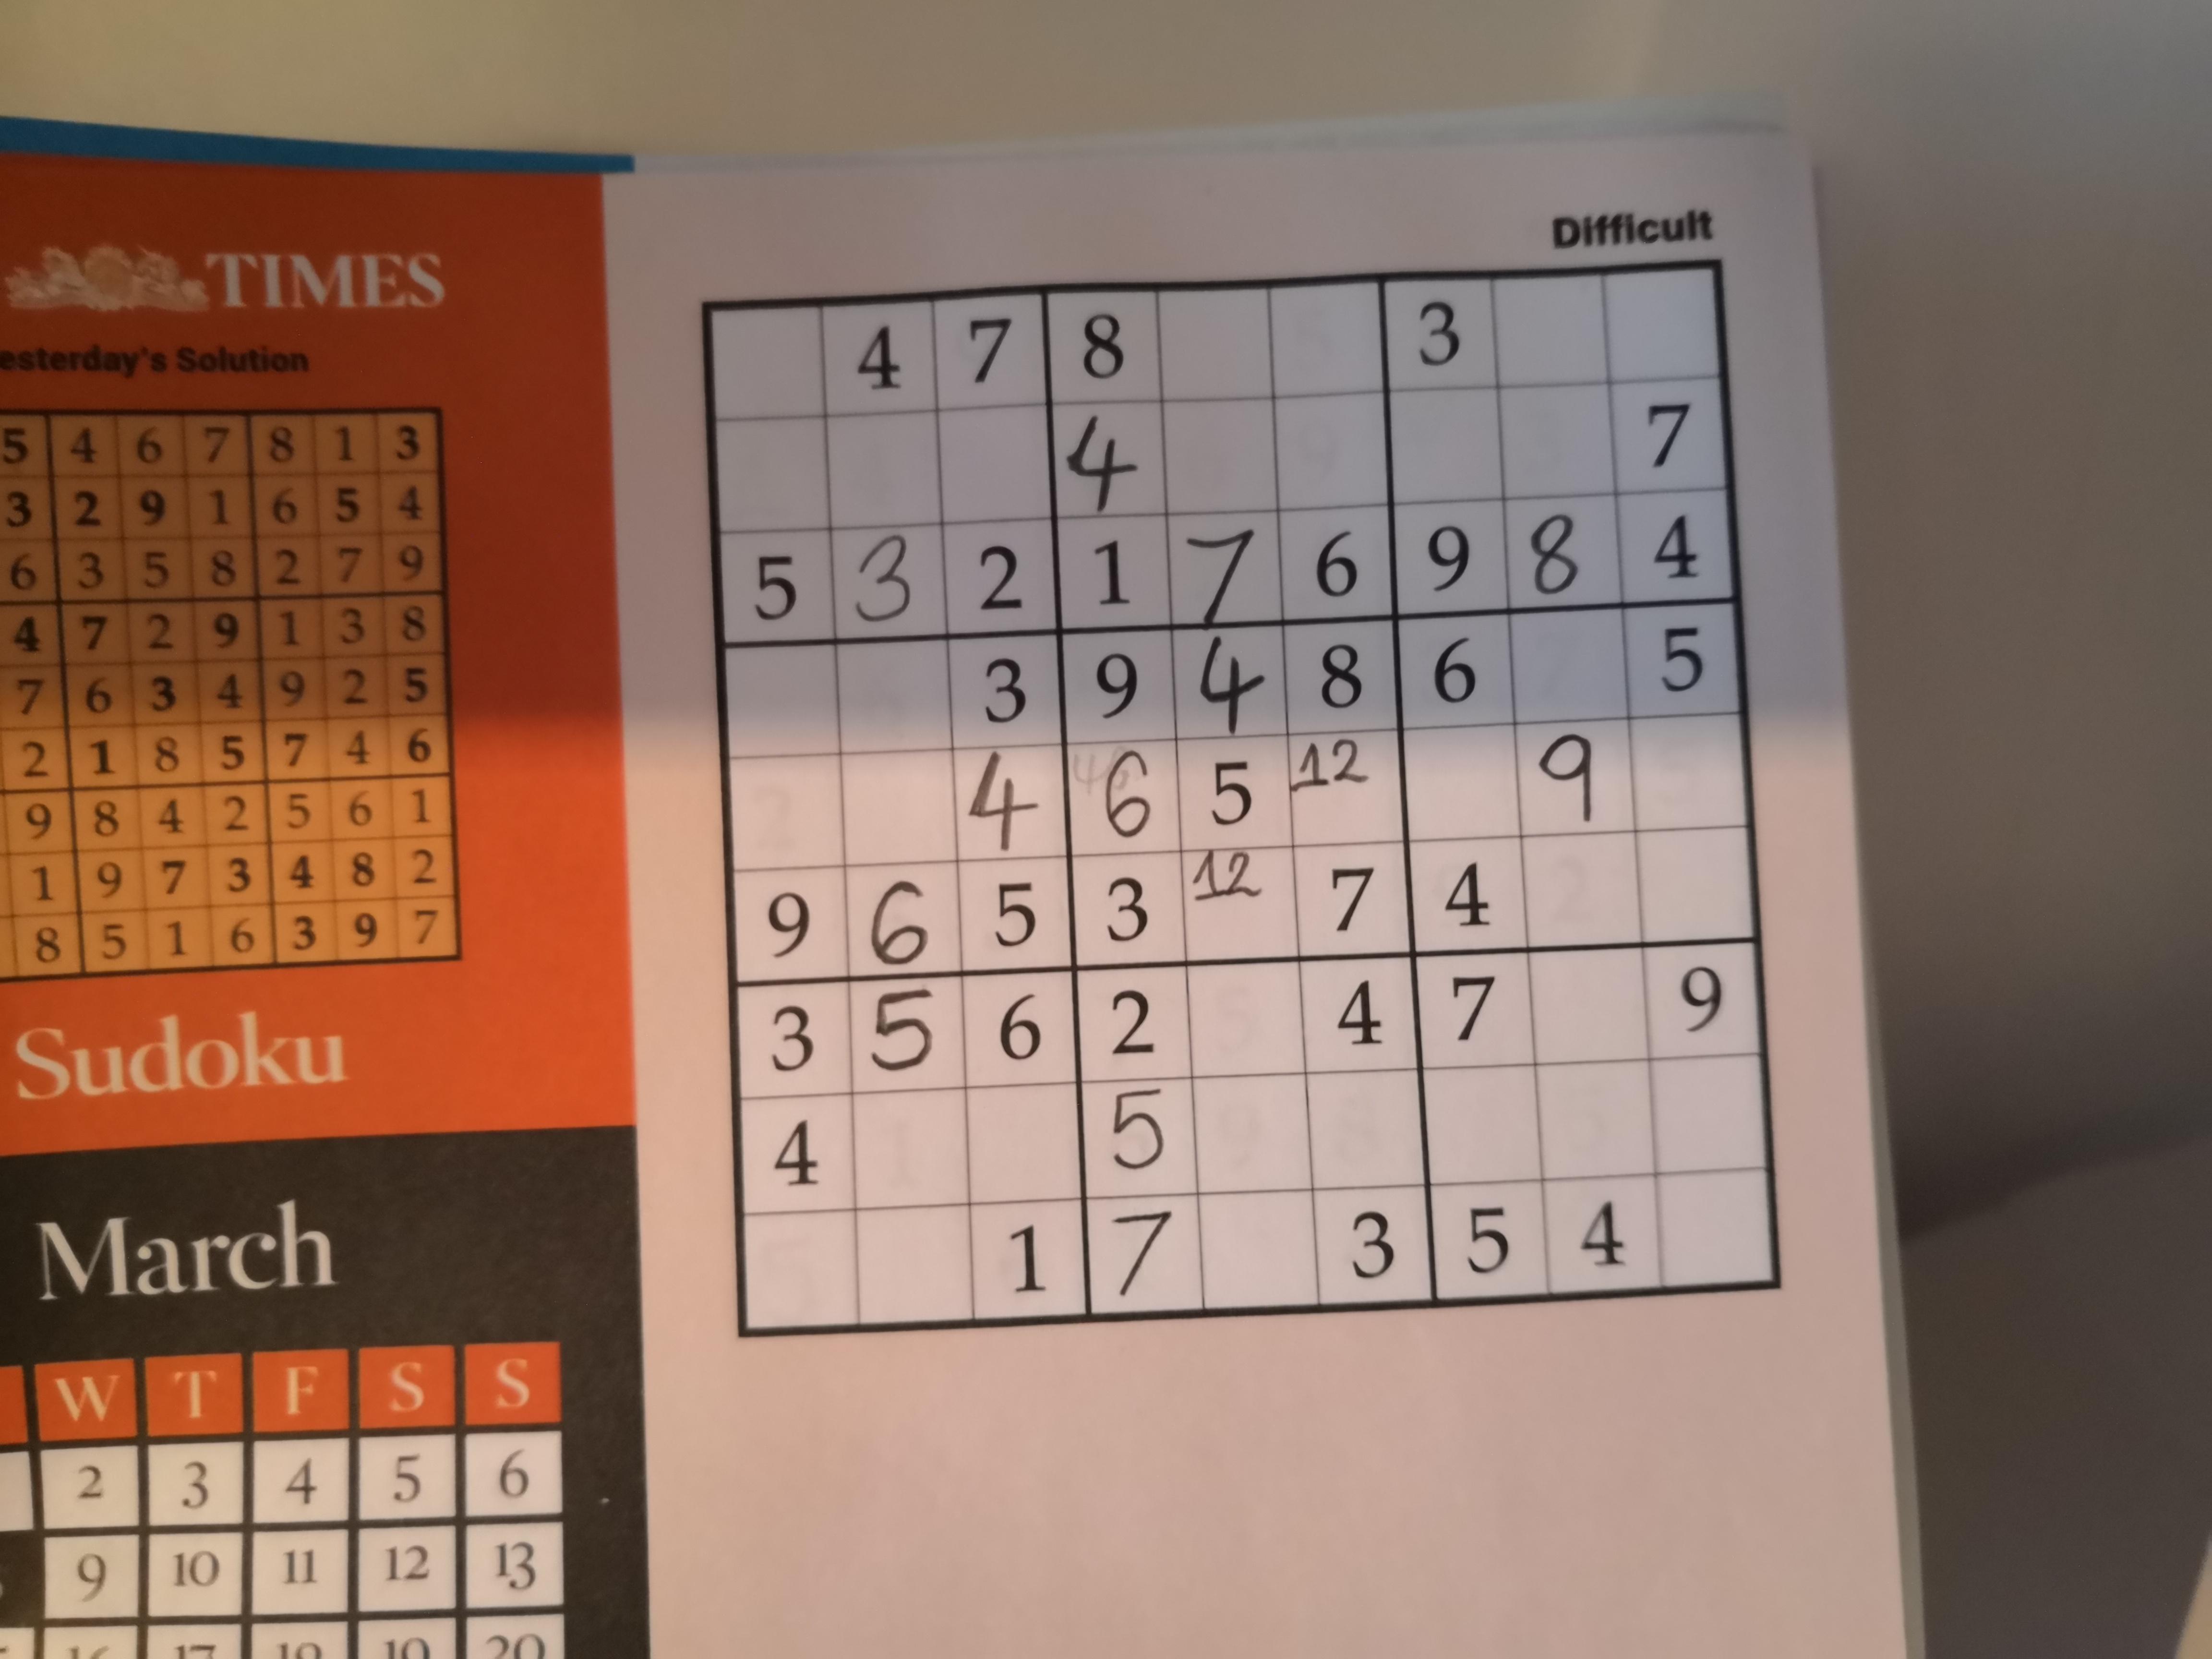 TIMES
esterday's Solution
5 4 6 7 8 1 3
3 2 9 1 6 5 4
6 3 5 8 2 7 9
4 7 2 9 1 3 8
7 6 3 4 9 2 5
2 1 8 5 7 4 6
9 8 4 2 5 6 1
1 9 7 3 4 8 2
8 5 1 6 3 9 7
Sudoku
March
W T F S S
2 3 4 5 6
9 10 11 12 13
16 17 18 19 20
Difficult
4 7 8 3
4 7
5 3 2 1 7 6 9 8 4
3 9 4 8 6 5
4 6 5 12 9
9 6 5 3 12 7 4
3 5 6 2 4 7 9
4 5
1 7 3 5 4